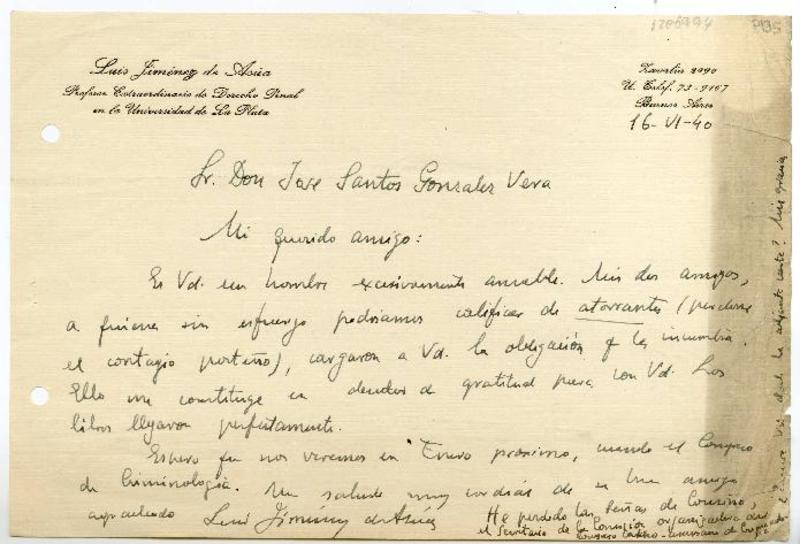 1206994
Luis Jiménez de Asúa
Profesor Extraordinario de Derecho Penal
en la Universidad de La Plata
Buenos Aires
16-VI-40
Sr. Don Jose Santos Gonzalez Vera
Mi querido amigo:
Es Vd. un hombre excesivamente amable. Mis dos amigos,
a quienes sin esfuerzo podriamos calificar de atorrantes (perdone
el contagio porteño), cargaron a Vd. la obligación q les incumbia.
Ello me constituye en deudor de gratitud para con Vd. Los
libros llegaron perfectamente.
Espero que nos veremos en Enero proximo, cuando el Congreso
de Criminologia. Un saludo muy cordial de su buen amigo
agradecido Luis Jiménez de Asúa
He perdido las señas de Cousiño,
el Secretario de la Comision organizadora del
Congreso
Vd. la adjunta carta? Mil gracias